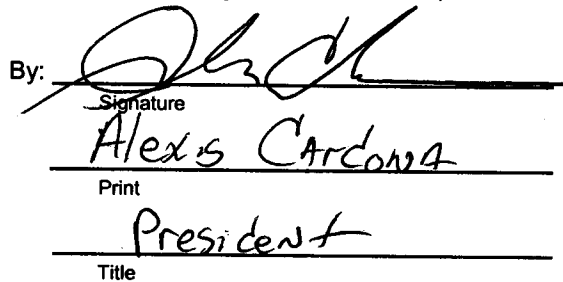 By:
Signature
Alexis Cardona
Print
President
Title